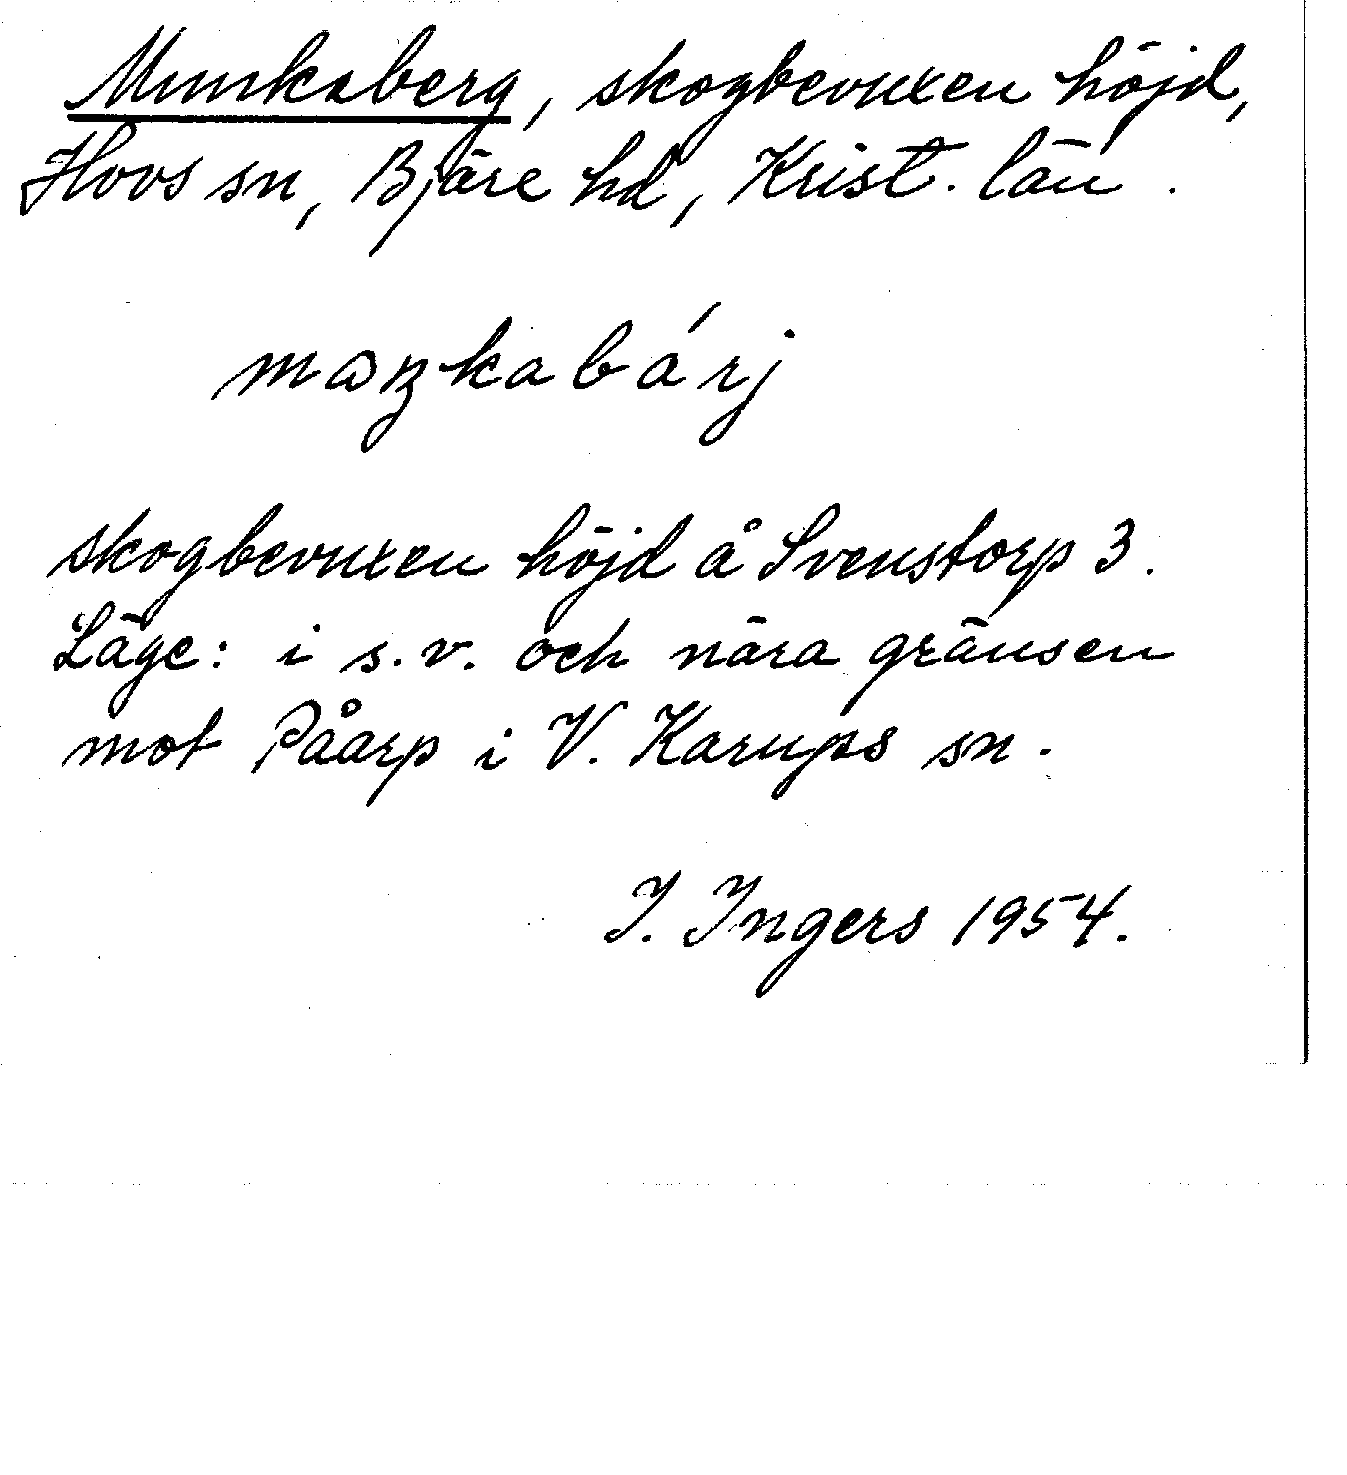 Munkaberg, skogbevuxen höjd,
Hovs sn, Bjäre hd, Krist. län.
maŋkabárj
skogbevuxen höjd å Svenstorp 3.
Läge: i s.v. och nära gränsen
mot Påarp i V. Karups sn.
I. Ingers 1954.